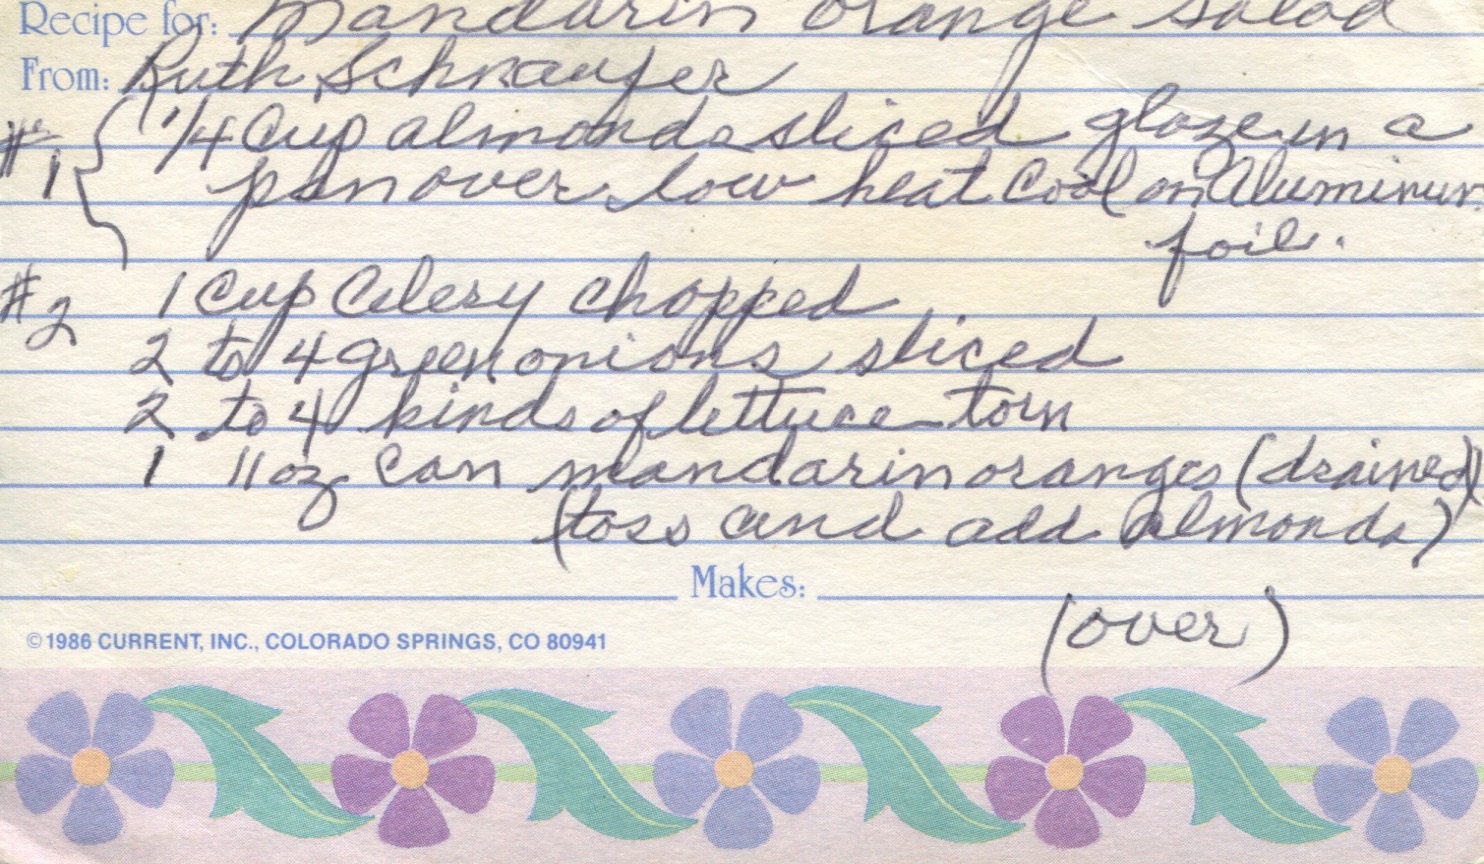 Recipe for: Mandarin Orange Salad
From: Ruth Schnaufer
#1 1/4 Cup almonds sliced glaze in a
pan over low heat Cool on Aluminum
foil.
#2 1 Cup Celery chopped
2 to 4 green onions sliced
2 to 4 kinds of lettuce torn
1 11 oz can mandarin oranges (drained)
(toss and add almonds)
Makes:
(over)
©1986 CURRENT, INC., COLORADO SPRINGS, CO 80941